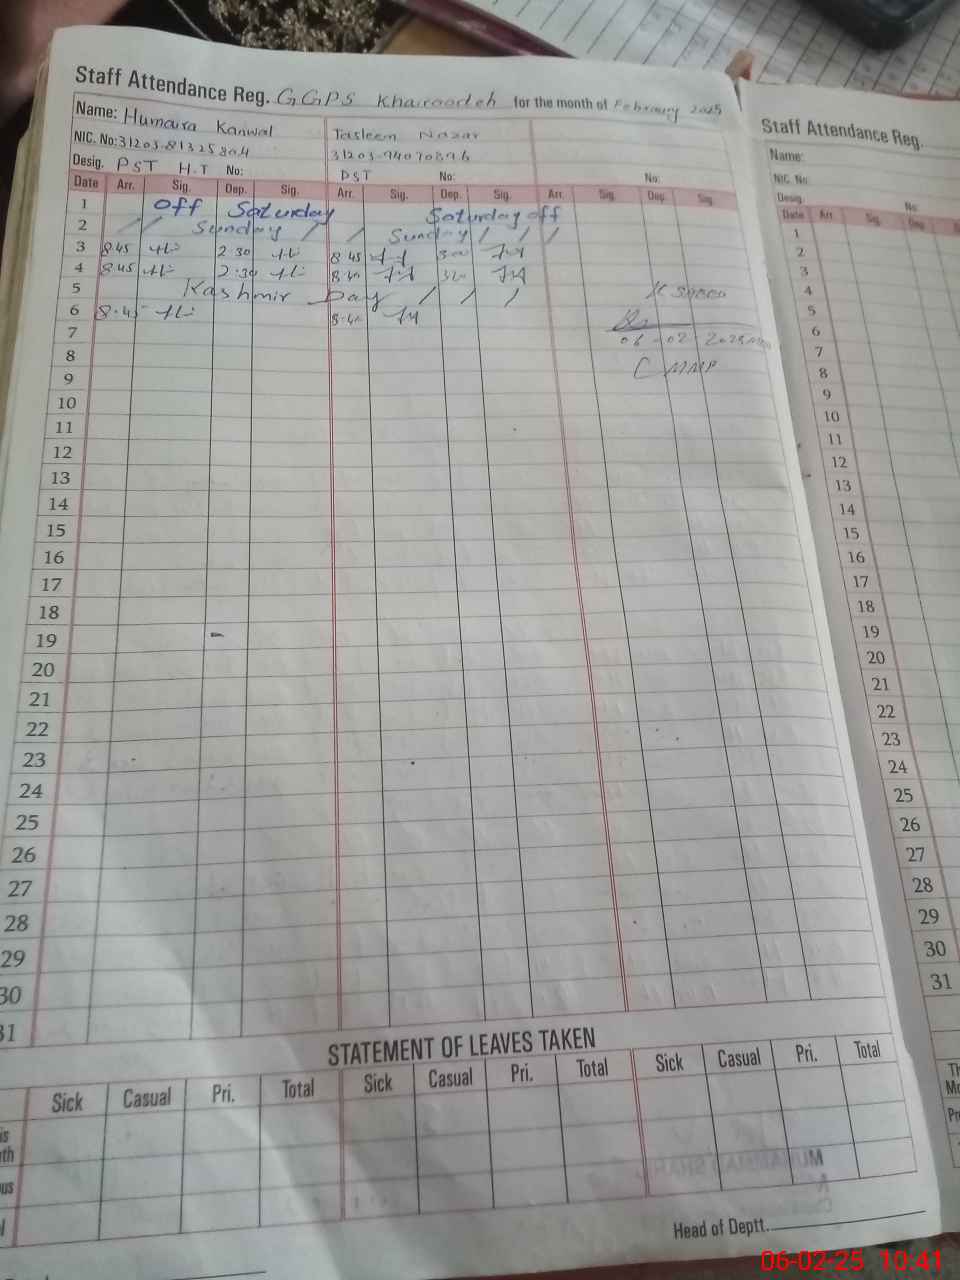 Staff Attendance Reg. GGPS Khairoodeh for the month of February 2025
Name: Humaira Kanwal Tasleem Nazar
NIC. No:
Desig. PST H.T No: PST No: No:
Date Arr. Sig. Dep. Sig. Arr. Sig. Dep. Sig. Arr. Sig. Dep. Sig.
1 Off Saturday Saturday off
2 Sunday Sunday
3 8 45 2 30 8 45
4 8 45 2:30
5 Kashmir Day
6 8.45
06-02-2025
7
8
9
10
11
12
13
14
15
16
17
18
19
20
21
22
23
24
25
26
27
28
29
30
31
STATEMENT OF LEAVES TAKEN
Sick Casual Pri. Total Sick Casual Pri. Total Sick Casual Pri. Total
Head of Deptt.
Staff Attendance Reg.
Name:
NIC. No:
Desig. No:
Date Arr. Sig. Dep.
1
2
3
4
5
6
7
8
9
10
11
12
13
14
15
16
17
18
19
20
21
22
23
24
25
26
27
28
29
30
31
06-02-25 10:41